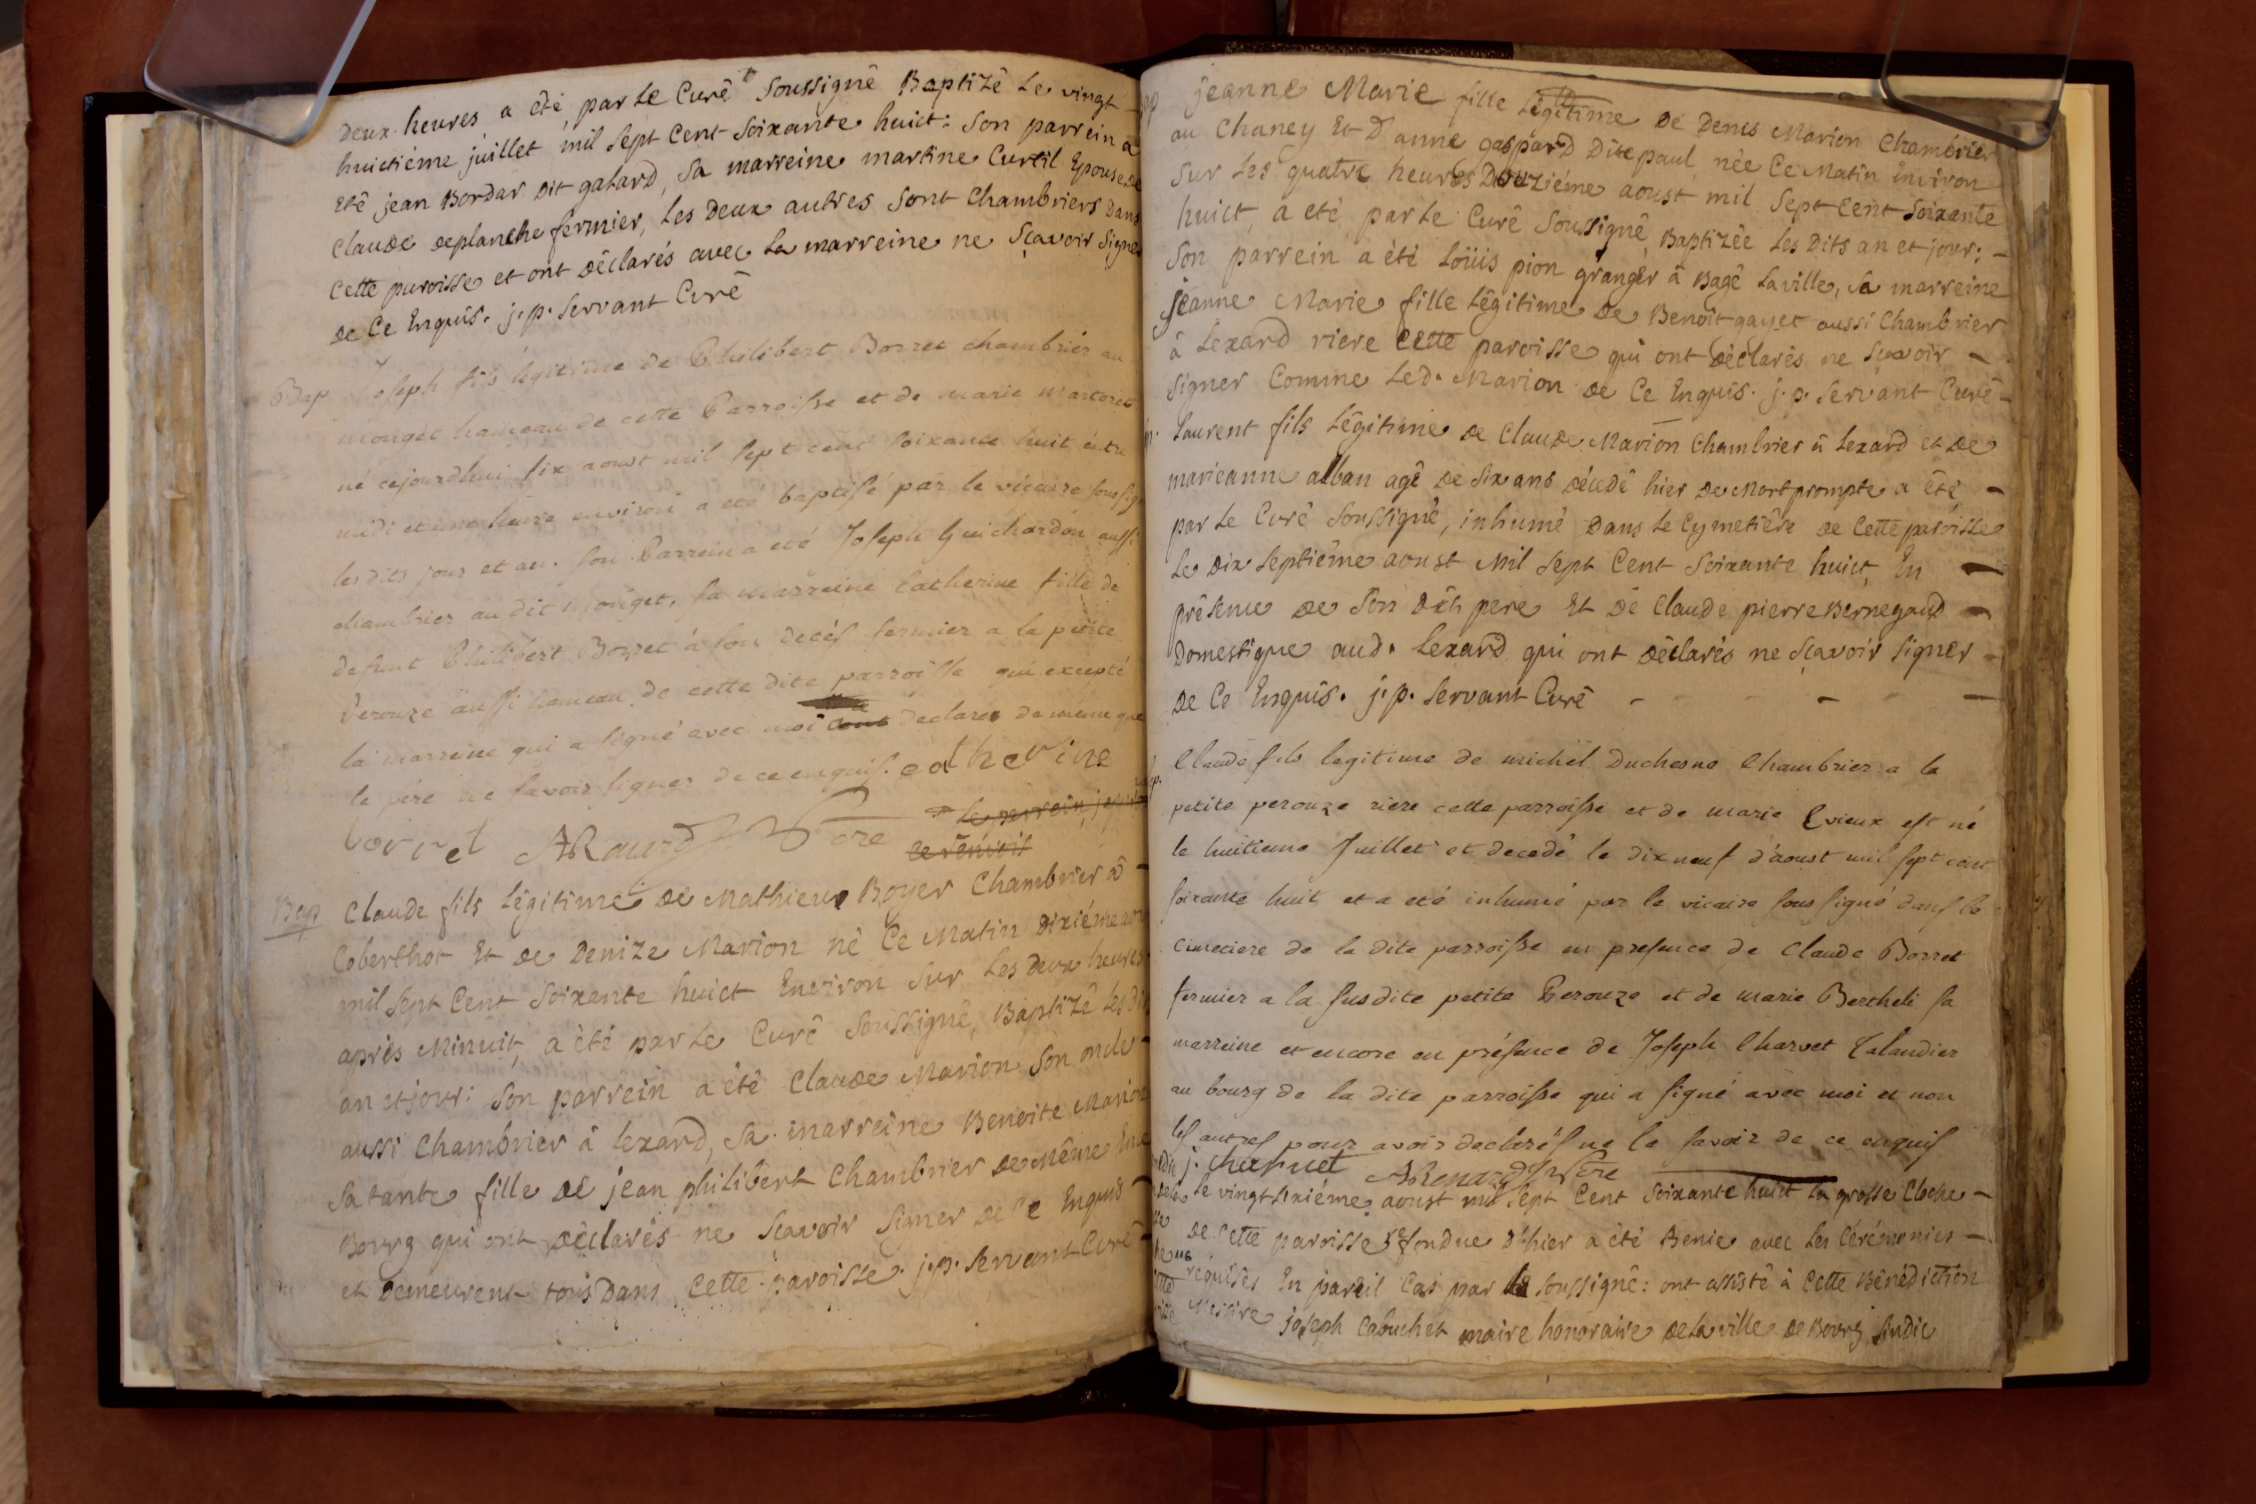 Deux heures a été, par Le Curé Soussigné Baptizé Le vingt
huictiéme juillet mil Sept Cent Soixante huict: Son parrein a
Eté jean Bordar Dit galard, Sa marreine martine Curtil Epouse de
Claude Deplanche fermier, Les Deux autres Sont Chambriers Dans
Cette paroisse et ont Déclarés avec La marreine ne Sçavoir Signer
De Ce Enquis. j. p. Servant Curé
Bap Joseph fils légitime de Philibert Borret chambrier au
mouget hameau de cette Parroisse et de marie
né cejourdhui six aoust mil sept cent soixante huit entre
midi et une heure environ a eté baptisé par le vicaire soussigné
les dits jour et an. Son Parrein a eté Joseph Guichardon aussi
chambrier au dit mouget, sa marreine Catherine fille de
defunt Philibert Borret à son decès fermier a la petite
Perouze aussi hameau de cette dite parroisse qui excepté
la marreine qui a signé avec moi declarer de meme que
le pere ne savoir signer de ce enquis. catherine
borret ARenard Vre
Bap Claude fils Légitime De Mathieu Boyer Chambrier à
Coberthot Et De Denize Marion né Ce Matin Dixiéme aou
mil Sept Cent Soixante huict Environ Sur Les Deux heures
après Minuit, a èté par Le Curé Soussigné, Baptizé Les dit
an et jour: Son parrein a été Claude Marion Son oncle
aussi Chambrier à Lexard, Sa marreine Benoite Marion
Sa tante fille De jean philibert Chambrier De Même En ce
Bourg qui ont Déclarés ne Scavoir Signer De Ce Enquis
et Demeurent tous Dans Cette paroisse. j. p. Servant Curé
jeanne Marie fille Légitime De Denis Marion Chambrier
au Chaney Et D'anne gaspard Dite paul née Ce Matin Environ
Sur Les quatre heures Douziéme aoust mil Sept Cent Soixante
huict, a eté par Le Curé Soussigné Baptizée Les Dits an et jour; -
Son parrein a été Loüis pion granger à Bagé La ville, Sa marreine
jeanne Marie fille Légitime De Benoît gayet aussi Chambrier
à Lexard riere Cette paroisse qui ont Déclarés ne Scavoir -
Signer Comme Led. Marion De Ce Enquis. j. p. Servant Curé -
Laurent fils Légitime De Claude Marion Chambrier à Lexard et De
marieanne alban agé De Six ans Décédé hier De Mort prompte a été -
par Le Curé Soussigné, inhumé Dans Le Cymetiére De Cette paroisse
Le Dix Septiéme aoust Mil Sept Cent Soixante huict, En -
présence De Son Dit pere Et De Claude pierre Bernegaud -
Domestique aud. Lexard qui ont Déclarés ne Sçavoir Signer -
De Ce Enquis. j. p. Servant Curé - - - -
Claude fils legitime de michel Duchesne Chambrier a la
petite perouze riere cette parroisse et de marie Evieux est né
le huitieme Juillet et decedé le dix neuf d'aoust mil sept cent
soixante huit et a eté inhumé par le vicaire soussigné dans le
cimetiere de la dite parroisse en presence de Claude Borret
fermier a la susdite petite Perouze et de marie Bertheli sa
marreine et encore en présence de Joseph Charvet
au bourg de la dite parroisse qui a signé avec moi et non
les autres pour avoir declarés ne le savoir de ce enquis
j. charvet ARenard Vre
Le vingt Sixiéme aoust mil Sept Cent Soixante huict La grosse Cloche -
De Cette paroisse refondue D'hier a été Benie avec Les Cérémonies -
requises En pareil Cas par Soussigné: ont assisté à Cette Bénédiction
Messire joseph Cabuchet maire honoraire De La ville De Bourg, Sindic